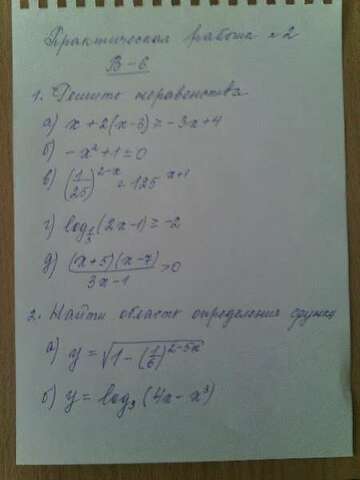 Практическая работа №2
В-6
1. Решить неравенства
а) x + 2(x-3) ≥ -3x+4
б) -x²+1 ≤ 0
в) (1/25)^(2-x) < 125^(x+1)
г) log_(1/3)(2x-1) ≥ -2
д) (x+5)(x-7)/(3x-1) >0
2. Найти область определения функц
а) y = √(1-(1/6)^(2-5x))
б) y = log₃(4x-x³)